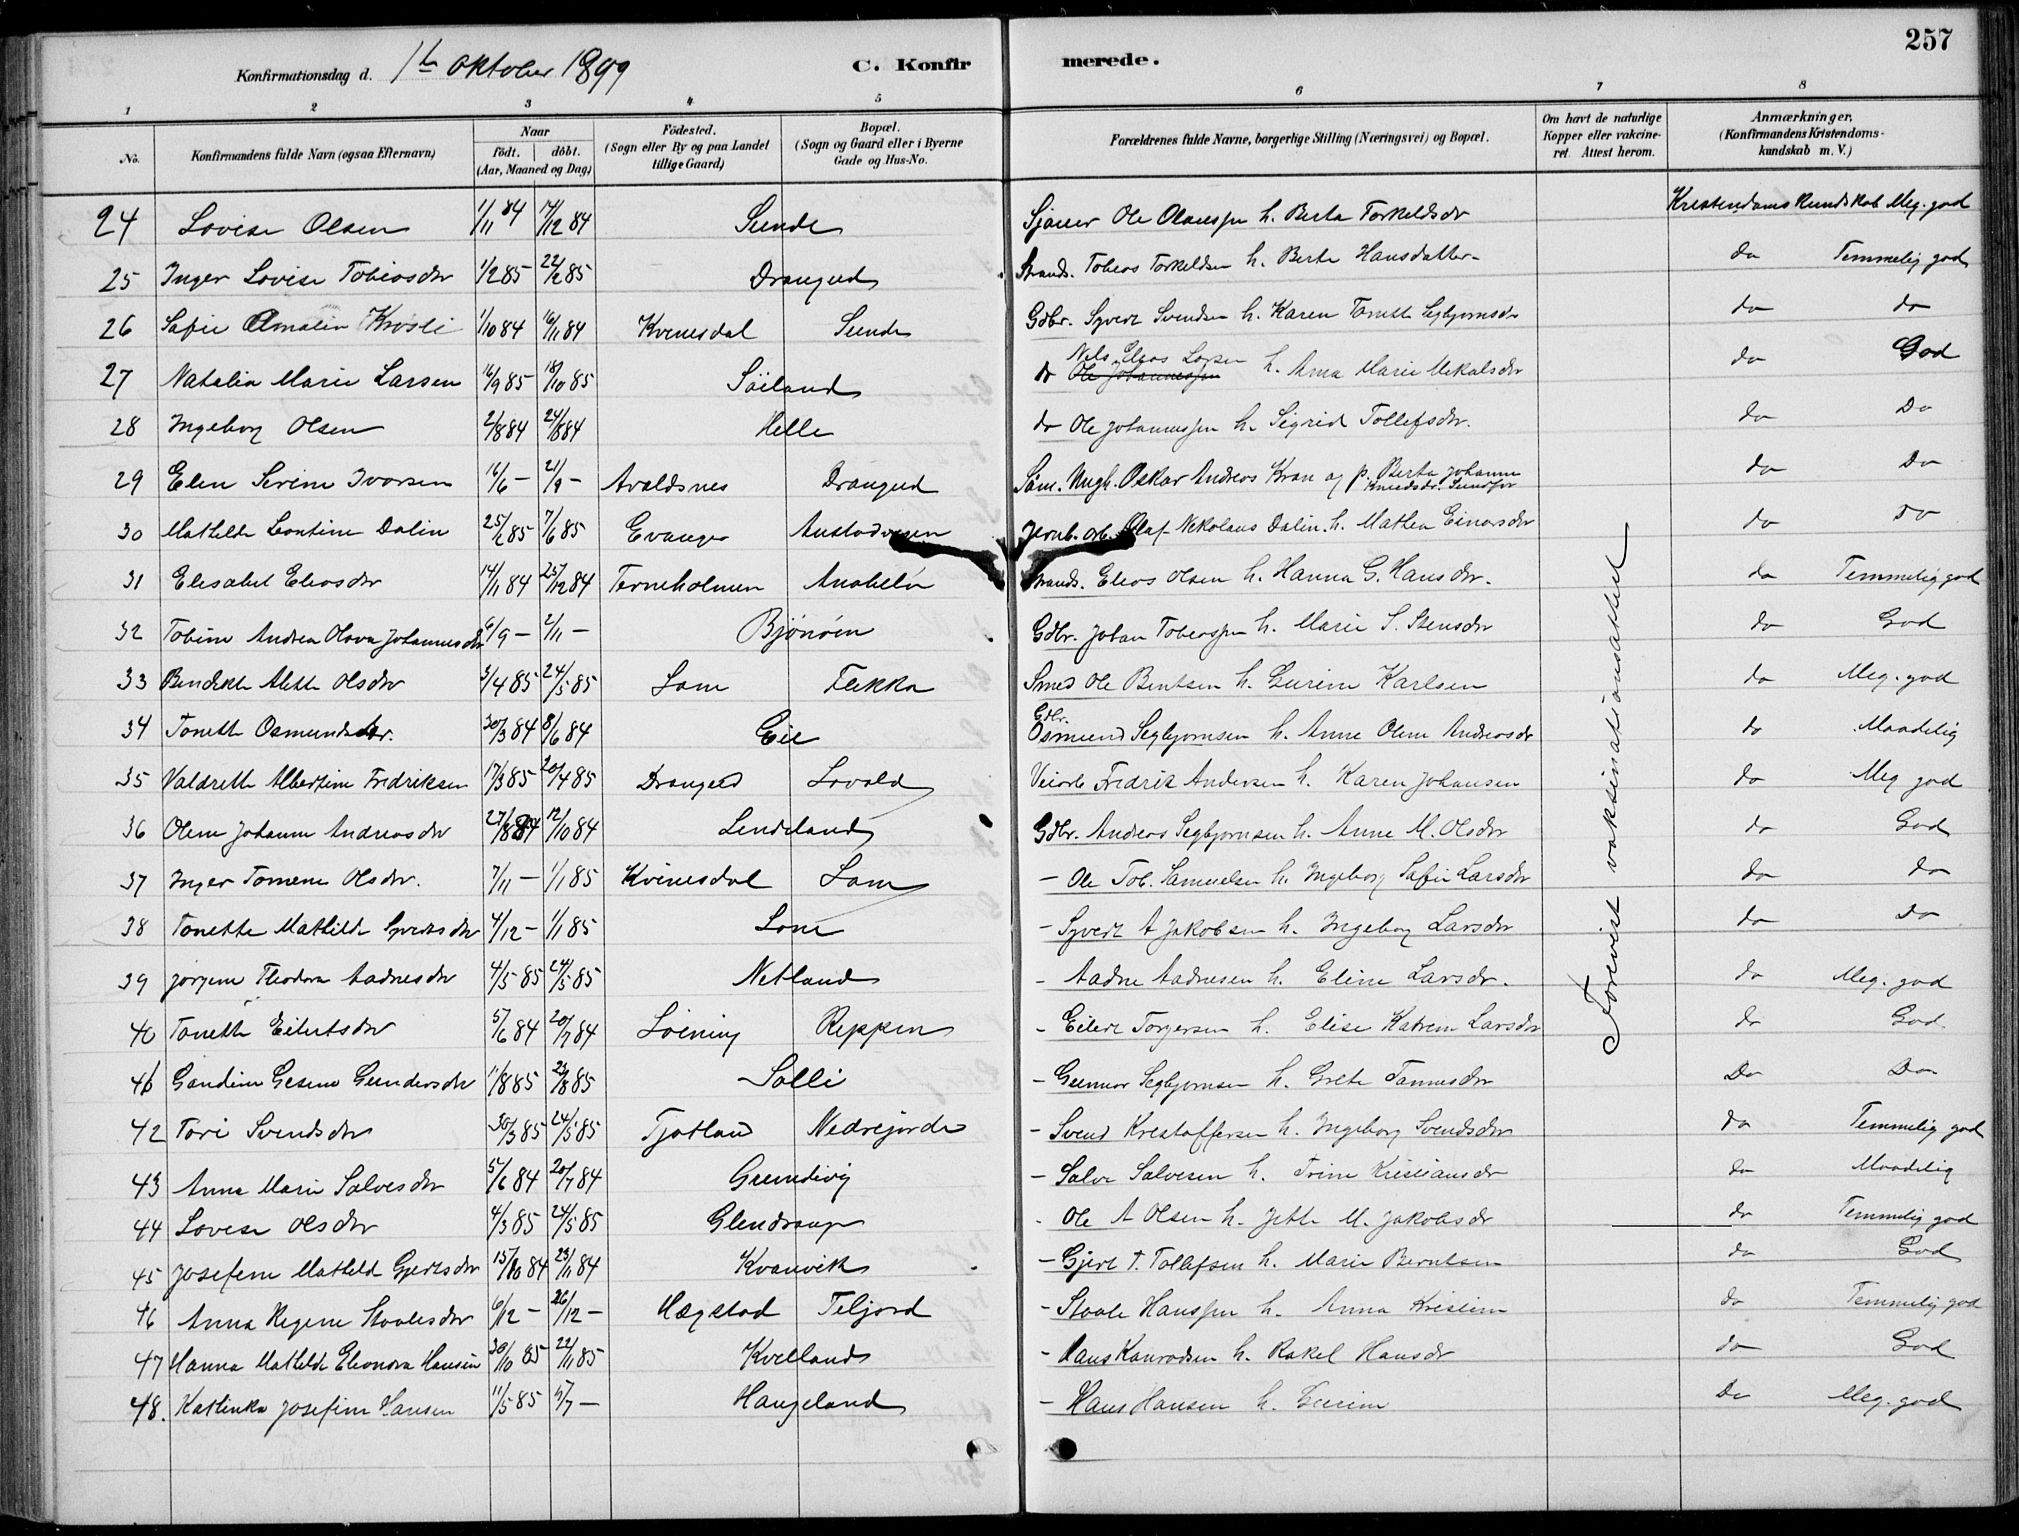 257
Konfirmationsdag d. 1ste oktober 1899 C. Konfirmerede.
1 2 3 4 5 6 7 8
No. Konfirmandens fulde Navn (ogsaa Efternavn) Naar födt. döbt. (Aar, Maaned og Dag) Födested. (Sogn eller By og paa Landet tillige Gaard) Bopæl. (Sogn og Gaard eller i Byerne Gade og Hus-No. Forældrenes fulde Navne, borgerlige Stilling (Næringsvei) og Bopæl. Om havt de naturlige Kopper eller vakcineret. Attest herom. Anmærkninger, (Konfirmandens Kristendomskundskab m. V.)
24 Lovise Olsen 1/11 84 14/12 84 Sunde Sjømr Ole Olaussen h. Berta Torkeldsdr Kristendomskundskab Meg. god
25 Inger Lovise Tobiasdr 1/2 85 22/2 85 Drangeid Strands. Tobias Torkeldsen h. Berte Hansdatter do Temmelig god
26 Sofie Amalie Krosli 1/10 84 16/11 84 Kvinesdal Sunde Gdbr. Syvert Svendsen h. Karen Tonette Segbjornsdr do do
27 Natalia Marie Larsen 16/9 85 18/10 85 Söiland do Ole Johannessen Nils Elias Larsen h. Anna Marie Mikalsdr do God
28 Ingeborg Olsen 2/8 84 24/8 84 Helle do Ole Johannessen h. Sigrid Tollefsdr. do Do
29 Elen Serine Ivarsen 16/6 – 21/9 – Avaldsnes Drangeid Søm. Ungk. Oskar Andreas Kran og p. Berta Johanne Knudsdr. Sundfør do Do
30 Mathilde Leontine Dalin 25/2 85 7/6 85 Evanger Austadvegen Jernb. arb. Olaf Nikolaus Dalin. h. Mathea Einarsdr do Do
31 Elisabet Eliasdr 14/11 84 25/12 84 Terneholmen Anabelø Strands. Elias Olsen h. Hanna G. Hansdr. do Temmelig god
32 Tobine Andrea Olava Johannesdr 6/9 – 2/11 – Bjørnøen Gdbr. Johan Tobiassen h. Marie S. Stensdr do God
33 Bendikte Alette Olsdr 3/4 85 24/5 85 Lom Flikka Smed Ole Bentsen h. Gurine Karlsen do Meg. god
34 Tonette Osmundsdr. 30/3 84 8/6 84 Eie Gdbr. Osmund Segbjornsen h. Anne Oline Andreasdr do Maadelig
35 Valdrette Albertine Fredriksen 17/3 85 20/4 85 Drangeid Lovold Veiarb Fredrik Andersen h. Karen Johansen do Meg god
36 Oline Johanne Andreasdr 27/8 84 12/10 84 Lendeland Gdbr. Andreas Segbjornsen h. Anne M. Olsdr do God
37 Inger Tomine Olsdr. 7/11 – 1/1 85 Kvinesdal Lom – Ole Tob. Samuelsen h. Ingeborg Sofie Larsdr do do
38 Tonette Mathilde Syvertsdr 4/12 – 1/1 85 Lone – Syvert A Jakobsen h. Ingeborg Larsdr do Do
39 Jørgine Theodora Aadnesdr 4/5 85 24/5 85 Netland – Aadne Aadnesen h. Eline Larsdr. do Meg. god
40 Tonette Eilertsdr 5/6 84 20/7 84 Løining Reppen – Eilert Torgersen h. Elise Katrine Larsdr do God.
41 Gandine Gesine Gundersdr 11/8 85 23/8 85 Solli – Gunnar Segbjornsen h. Grete Tønnesdr Do Do
42 Tori Svendsdr 30/3 85 24/5 85 Tjotland Nedrejorde – Svend Kristoffersen h. Ingeborg Svendsdr do Temmelig god
43 Anna Marie Salvesdr 5/6 84 20/7 84 Grundevig – Salve Salvesen h. Trine Kristiansdr do Maadelig
44 Lovise Olsdr 4/3 85 24/5 85 Glendrange – Ole A Olsen h. Jette M. Jakobsdr do Temmelig god
45 Josefine Mathilde Gjertsdr 15/10 84 23/11 84 Kvanvik – Gjert T. Tollefsen h. Marie Berntsen do God
46 Anna Regine Staalesdr 6/12 – 26/12 – Hægstad Teljord – Staale Hanssen h. Anna Kristine do Temmelig god
47 Hanna Mathilde Eleonora Hansen 30/10 85 22/11 85 Kvelland – Hans Kanrodsen h. Rakel Hansdr do God
48. Katinka Josefine Hansen 11/5 85 5/7 – Haugeland – Hans Hansen h. Gurine Do Meg. god
Forevist vaksinationsattest